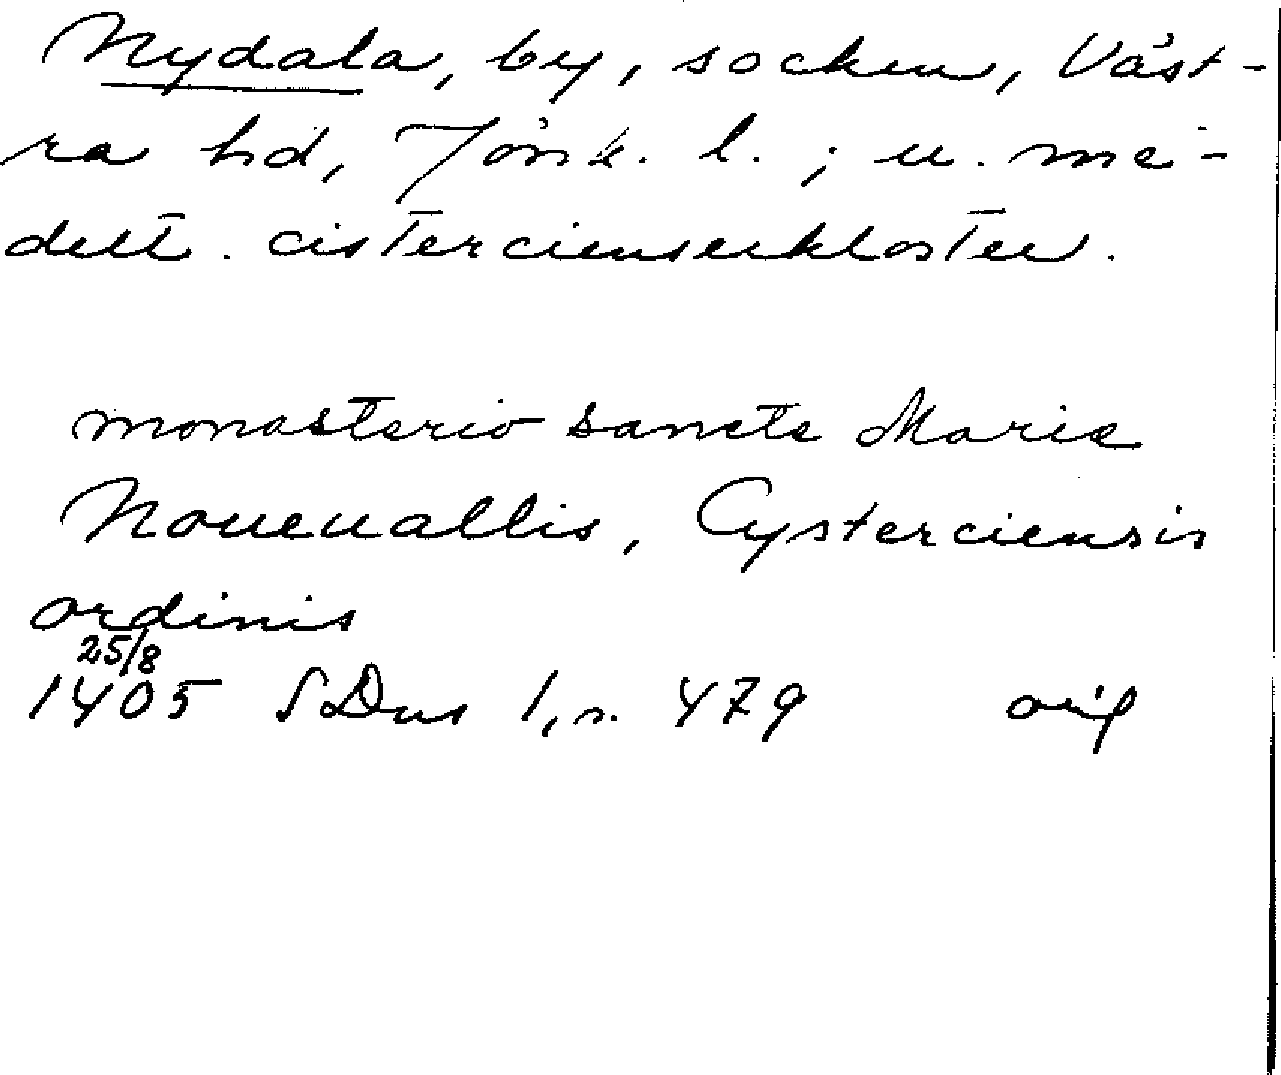 Nydala, by, socken, Väst-
ra hd, Jönk. l. ; u. me-
delt. cistercienserkloster.
monasterio sancte Marie
Noueuallis, Cysterciensis
ordinis
25/8
1405 SDns 1, s. 479 orig